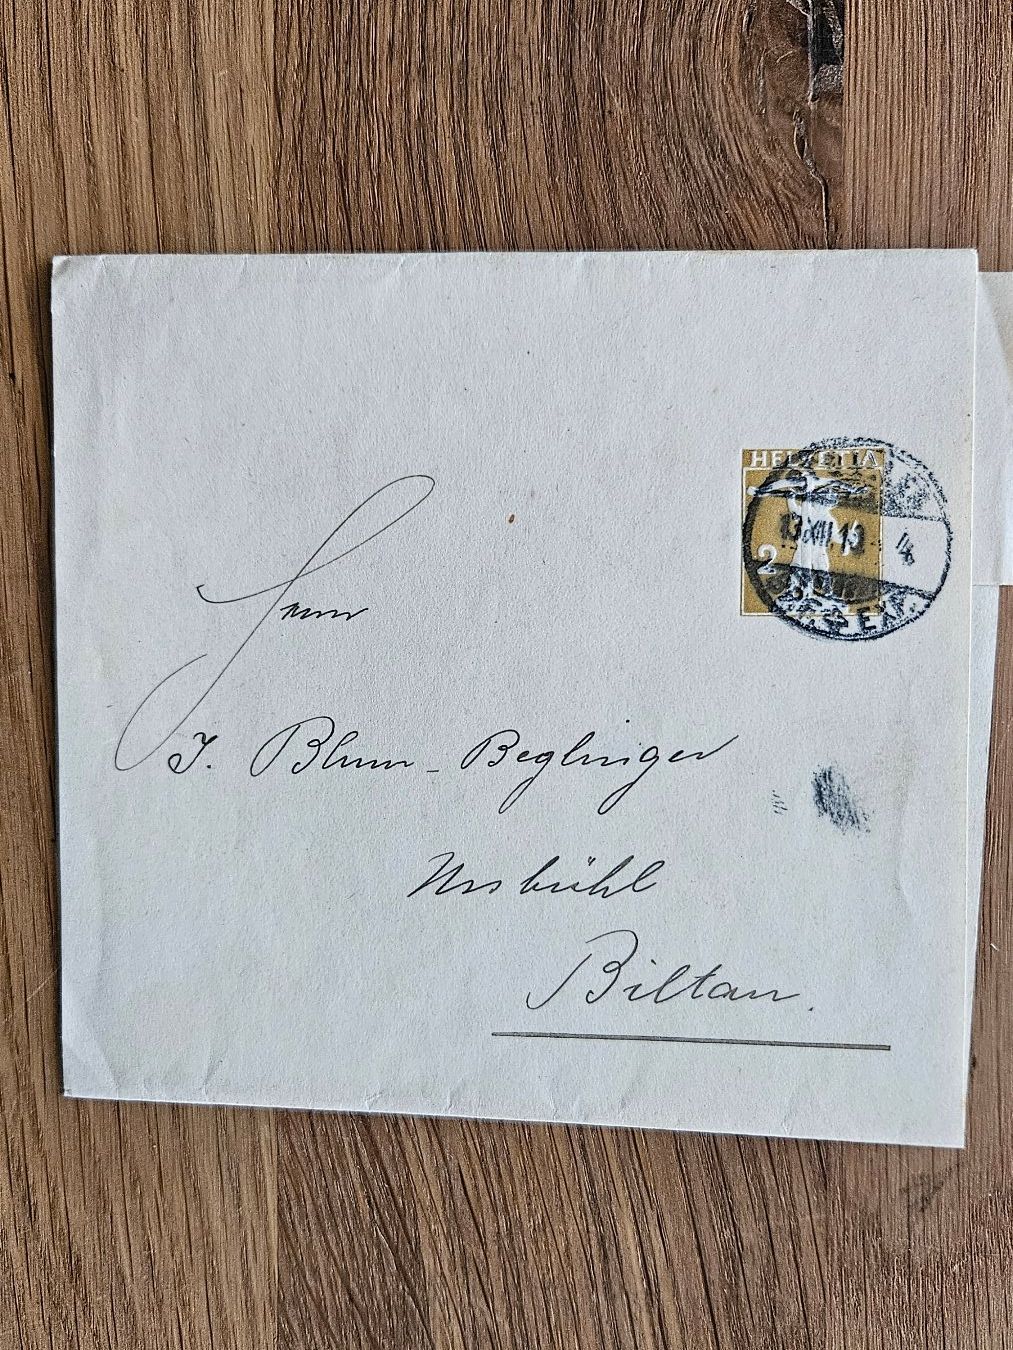 HELVETIA
2
13.XII.10
4
EXP.
Herrn
J. Blum-Beglinger
Ussbühl
Biltan.